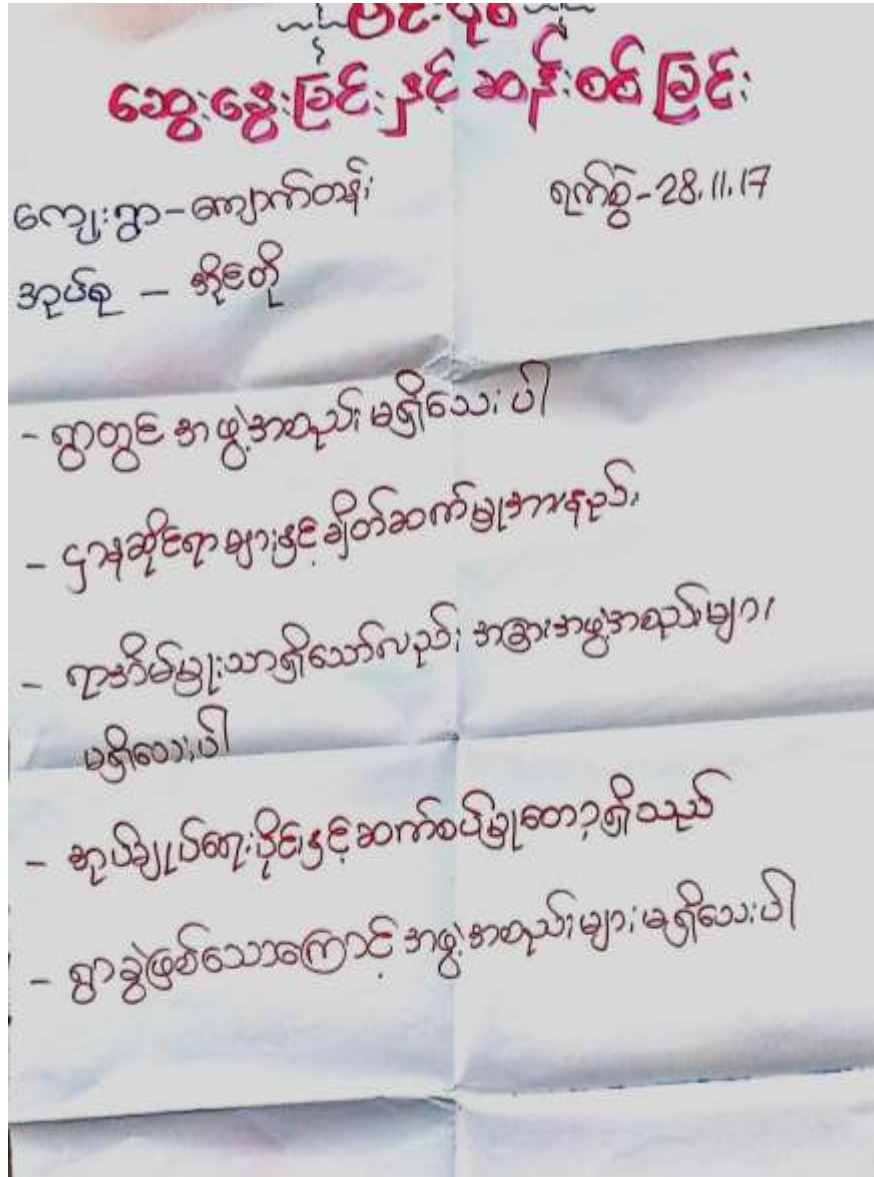 ဆွေးနွေးခြင်းနှင့် ဆန်းစစ်ခြင်း
ကျေးရွာ-ကျောက်တန်း ရက်စွဲ-28.11.17
အုပ်စု - အိုင်တို
- ရွာတွင် အဖွဲ့အစည်း မရှိသေးပါ
- ဌာနဆိုင်ရာများနှင့် ချိတ်ဆက်မှုအားနည်း
- ရာအိမ်မှူးသာရှိသော်လည်း အခြားအဖွဲ့အစည်းများ
မရှိသေးပါ
- အုပ်ချုပ်ရေးပိုင်းနှင့် ဆက်စပ်မှုတော့ရှိသည်
- ရွာခွဲဖြစ်သောကြောင့် အဖွဲ့အစည်းများ မရှိသေးပါ